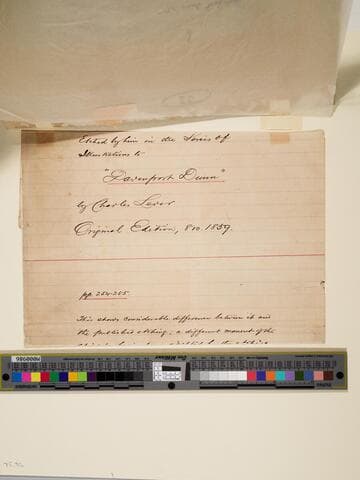 Etched by him in the Series of
Illustrations to
"Davenport Dunn"
by Charles Lever
Original Edition, 8vo 1859.
pp. 264-265.
This shows considerable difference between it and
the published etching; a different moment of the